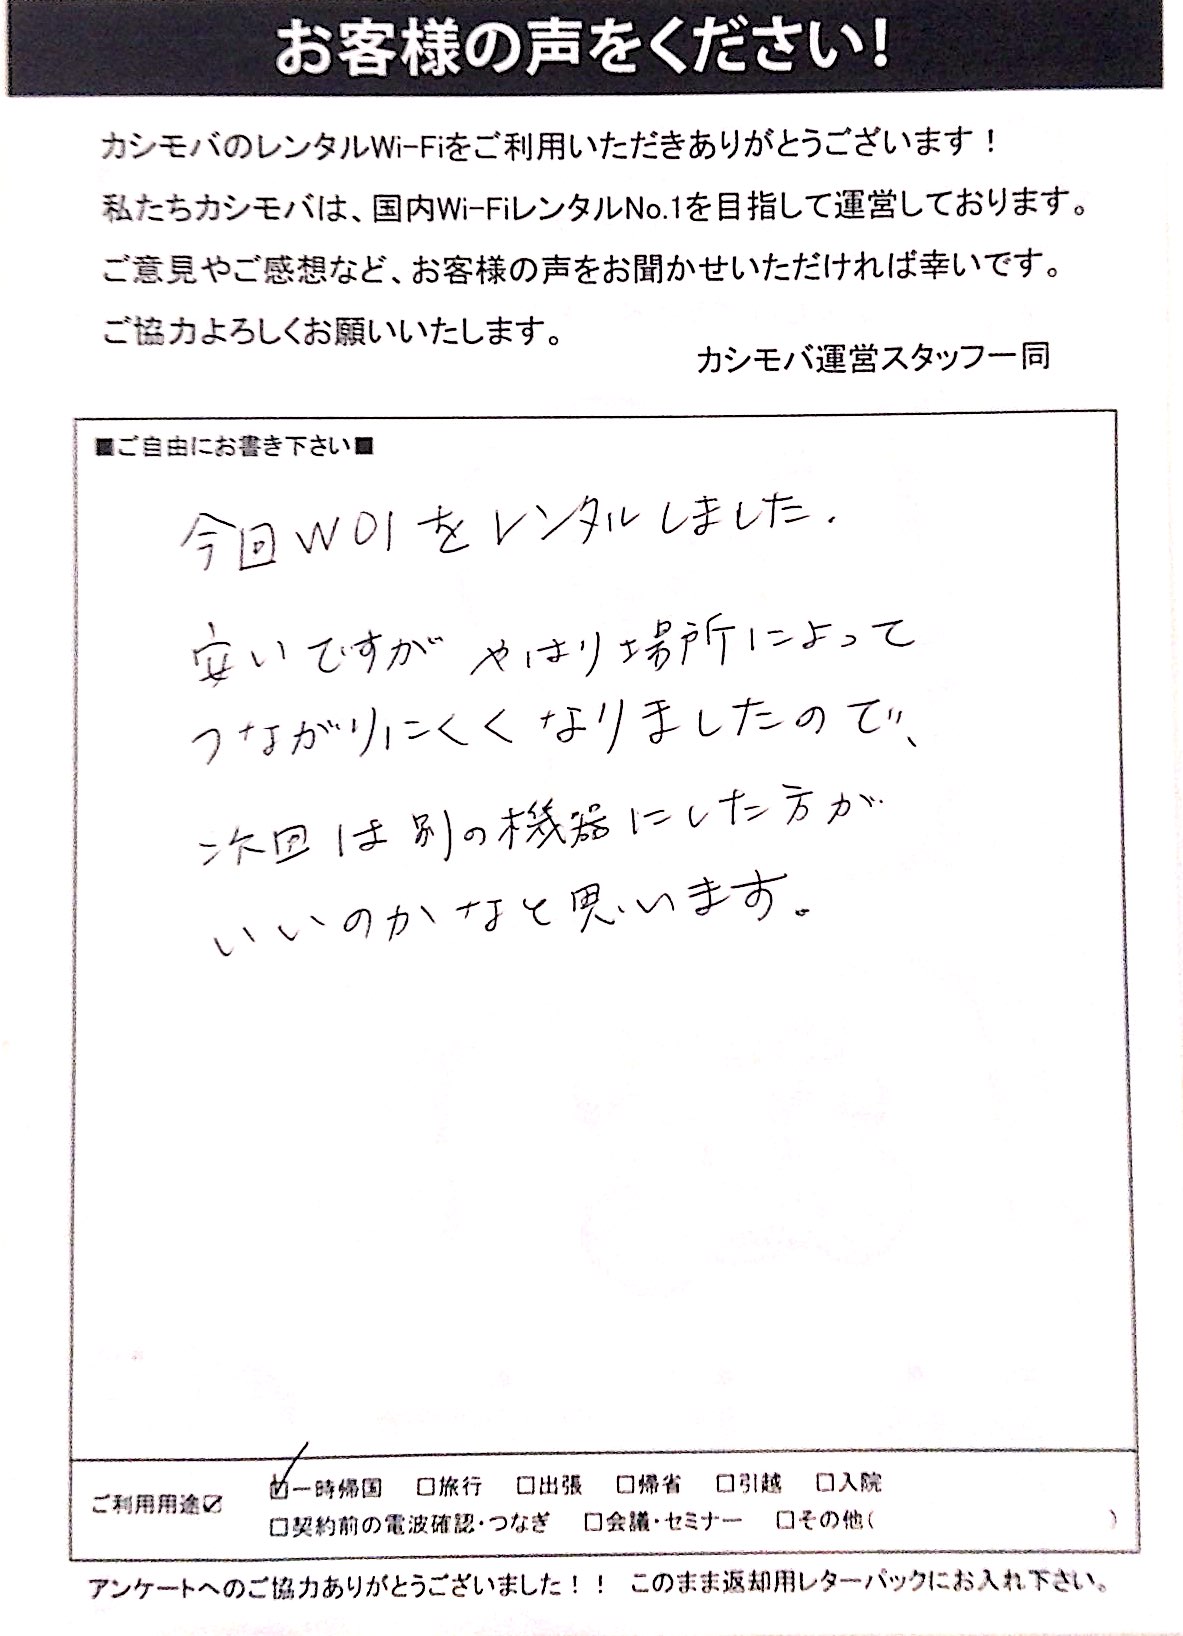 お客様の声をください!
カシモバのレンタルWi-Fiをご利用いただきありがとうございます！
私たちカシモバは、国内Wi-FiレンタルNo.1を目指して運営しております。
ご意見やご感想など、お客様の声をお聞かせいただければ幸いです。
ご協力よろしくお願いいたします。
カシモバ運営スタッフ一同
■ご自由にお書き下さい■
今回W01をレンタルしました.
安いですがやはり場所によって
つながりにくくなりましたので、
次回は別の機器にした方が
いいのかなと思います。
ご利用用途☑ ☑一時帰国 □旅行 □出張 □帰省 □引越 □入院
□契約前の電波確認・つなぎ □会議・セミナー □その他( )
アンケートへのご協力ありがとうございました！！ このまま返却用レターパックにお入れ下さい。